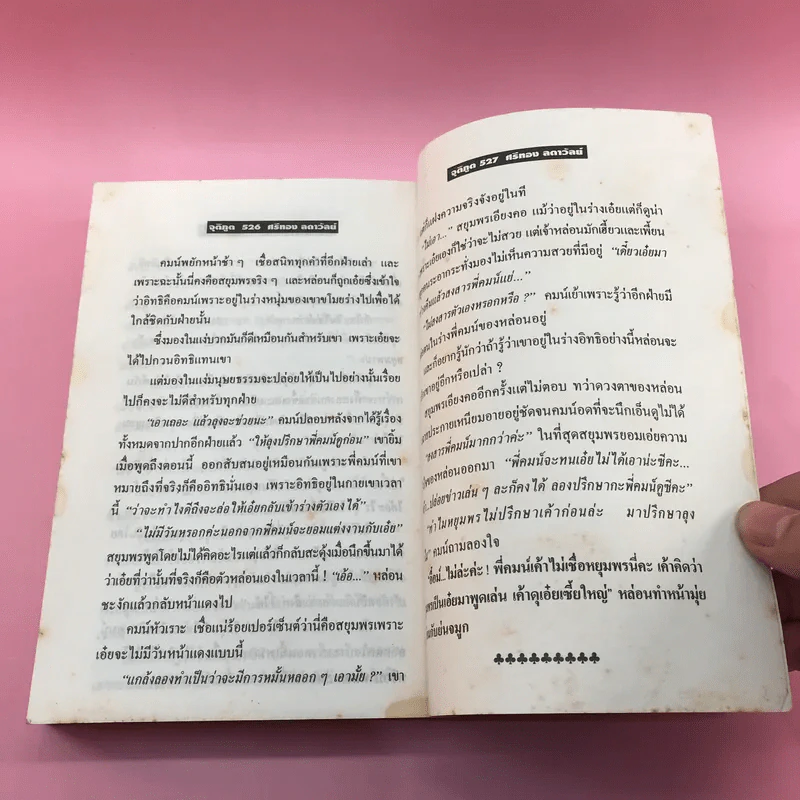 จุติภูต 526 ศรีทอง ลดาวัลย์
คมน์พยักหน้าช้า ๆ เชื่อสนิททุกคำที่อีกฝ่ายเล่า และ
เพราะฉะนั้นนี่คงคือสยุมพรจริง ๆ และหล่อนก็ถูกเอ๋ยซึ่งเข้าใจ
ว่าอิทธิคือคมน์เพราะอยู่ในร่างหนุ่มของเขาขโมยร่างไปเพื่อได้
ใกล้ชิดกับฝ่ายนั้น
ซึ่งมองในแง่บวกมันก็ดีเหมือนกันสำหรับเขา เพราะเอ๋ยจะ
ได้ไปกวนอิทธิแทนเขา
แต่มองในแง่มนุษยธรรมจะปล่อยให้เป็นไปอย่างนั้นเรื่อย
ไปก็คงจะไม่ดีสำหรับทุกฝ่าย
"เอาเถอะ แล้วลุงจะช่วยนะ" คมน์ปลอบหลังจากได้รู้เรื่อง
ทั้งหมดจากปากอีกฝ่ายแล้ว "ให้ลุงปรึกษาพี่คมน์ดูก่อน" เขายิ้ม
เมื่อพูดถึงตอนนี้ ออกสับสนอยู่เหมือนกันเพราะพี่คมน์ที่เขา
หมายถึงที่จริงก็คืออิทธินั่นเอง เพราะอิทธิอยู่ในกายเขาเวลา
นี้ "ว่าจะทำไงดีถึงจะล่อให้เอ๋ยกลับเข้าร่างตัวเองได้"
"ไม่มีวันหรอกค่ะนอกจากพี่คมน์จะยอมแต่งงานกับเอ๋ย"
สยุมพรพูดโดยไม่ได้คิดอะไรแต่แล้วก็กลับสะดุ้งเมื่อนึกขึ้นมาได้
ว่าเอ๋ยที่ว่านั้นที่จริงก็คือตัวหล่อนเองในเวลานี้ ! "เอ้อ..." หล่อน
ชะงักแล้วกลับหน้าแดงไป
คมน์หัวเราะ เชื่อแน่ร้อยเปอร์เซ็นต์ว่านี่คือสยุมพรเพราะ
เอ๋ยจะไม่มีวันหน้าแดงแบบนี้
"แกล้งลองทำเป็นว่าจะมีการหมั้นหลอก ๆ เอามั้ย ?" เขา
จุติภูต 527 ศรีทอง ลดาวัลย์
แฝงความจริงจังอยู่ในที
สยุมพรเอียงคอ แม้ว่าอยู่ในร่างเอ๋ยแต่ก็ดูน่า
เอ๋ยเองก็ใช่ว่าจะไม่สวย แต่เจ้าหล่อนมักเฮี้ยวและเพี้ยน
ระอากระทั่งมองไม่เห็นความสวยที่มีอยู่ "เดี๋ยวเอ๋ยมา
แล้วสงสารพี่คมน์แย่..."
"ไม่สงสารตัวเองหรอกหรือ ?" คมน์เย้าเพราะรู้ว่าอีกฝ่ายมี
ในร่างพี่คมน์ของหล่อนอยู่
และก็อยากรู้นักว่าถ้ารู้ว่าเขาอยู่ในร่างอิทธิอย่างนี้หล่อนจะ
เขาอยู่อีกหรือเปล่า ?
สยุมพรเอียงคออีกครั้งแต่ไม่ตอบ ทว่าดวงตาของหล่อน
ประกายเหนียมอายอยู่ชัดจนคมน์อดที่จะนึกเอ็นดูไม่ได้
"สงสารพี่คมน์มากกว่าค่ะ" ในที่สุดสยุมพรยอมเอ่ยความ
ของหล่อนออกมา "พี่คมน์จะทนเอ๋ยไม่ได้เอาน่ะซีคะ...
ปล่อยข่าวเล่น ๆ ละก็คงได้ ลองปรึกษากะพี่คมน์ดูซีคะ"
"ทำไมหยุมพรไม่ปรึกษาเค้าก่อนล่ะ มาปรึกษาลุง
คมน์ถามลองใจ
ไม่ล่ะค่ะ ! พี่คมน์เค้าไม่เชื่อหยุมพรนี่คะ เค้าคิดว่า
เป็นเอ๋ยมาพูดเล่น เค้าดุเอ๋ยเชี้ยใหญ่" หล่อนทำหน้ามุ่ย
ย่นจมูก
♣♣♣♣♣♣♣♣♣